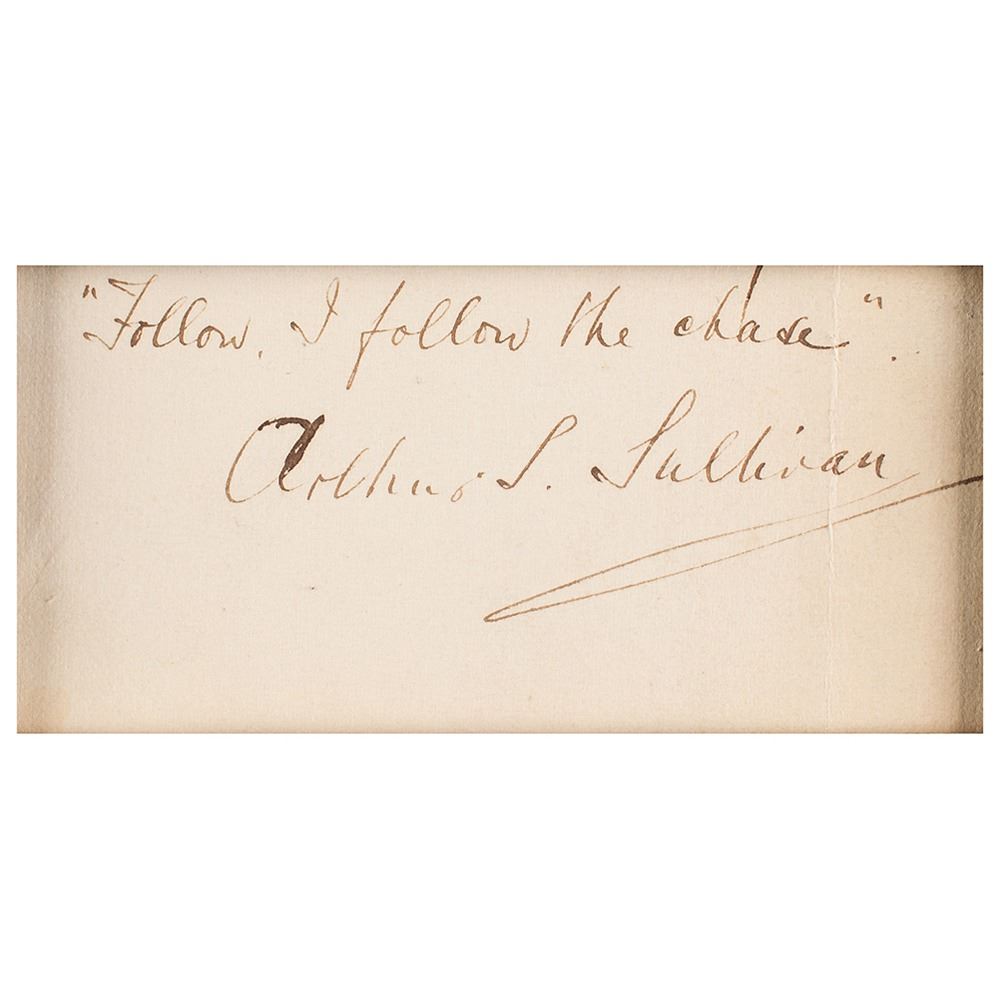 "Follow, I follow the chase".
Arthur S. Sullivan